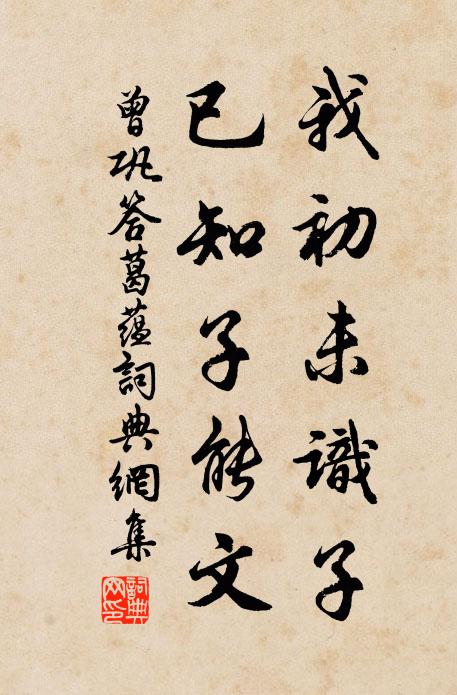 我初未識子
已知子能文
曾巩答葛蕴詞典網集
詞典網印